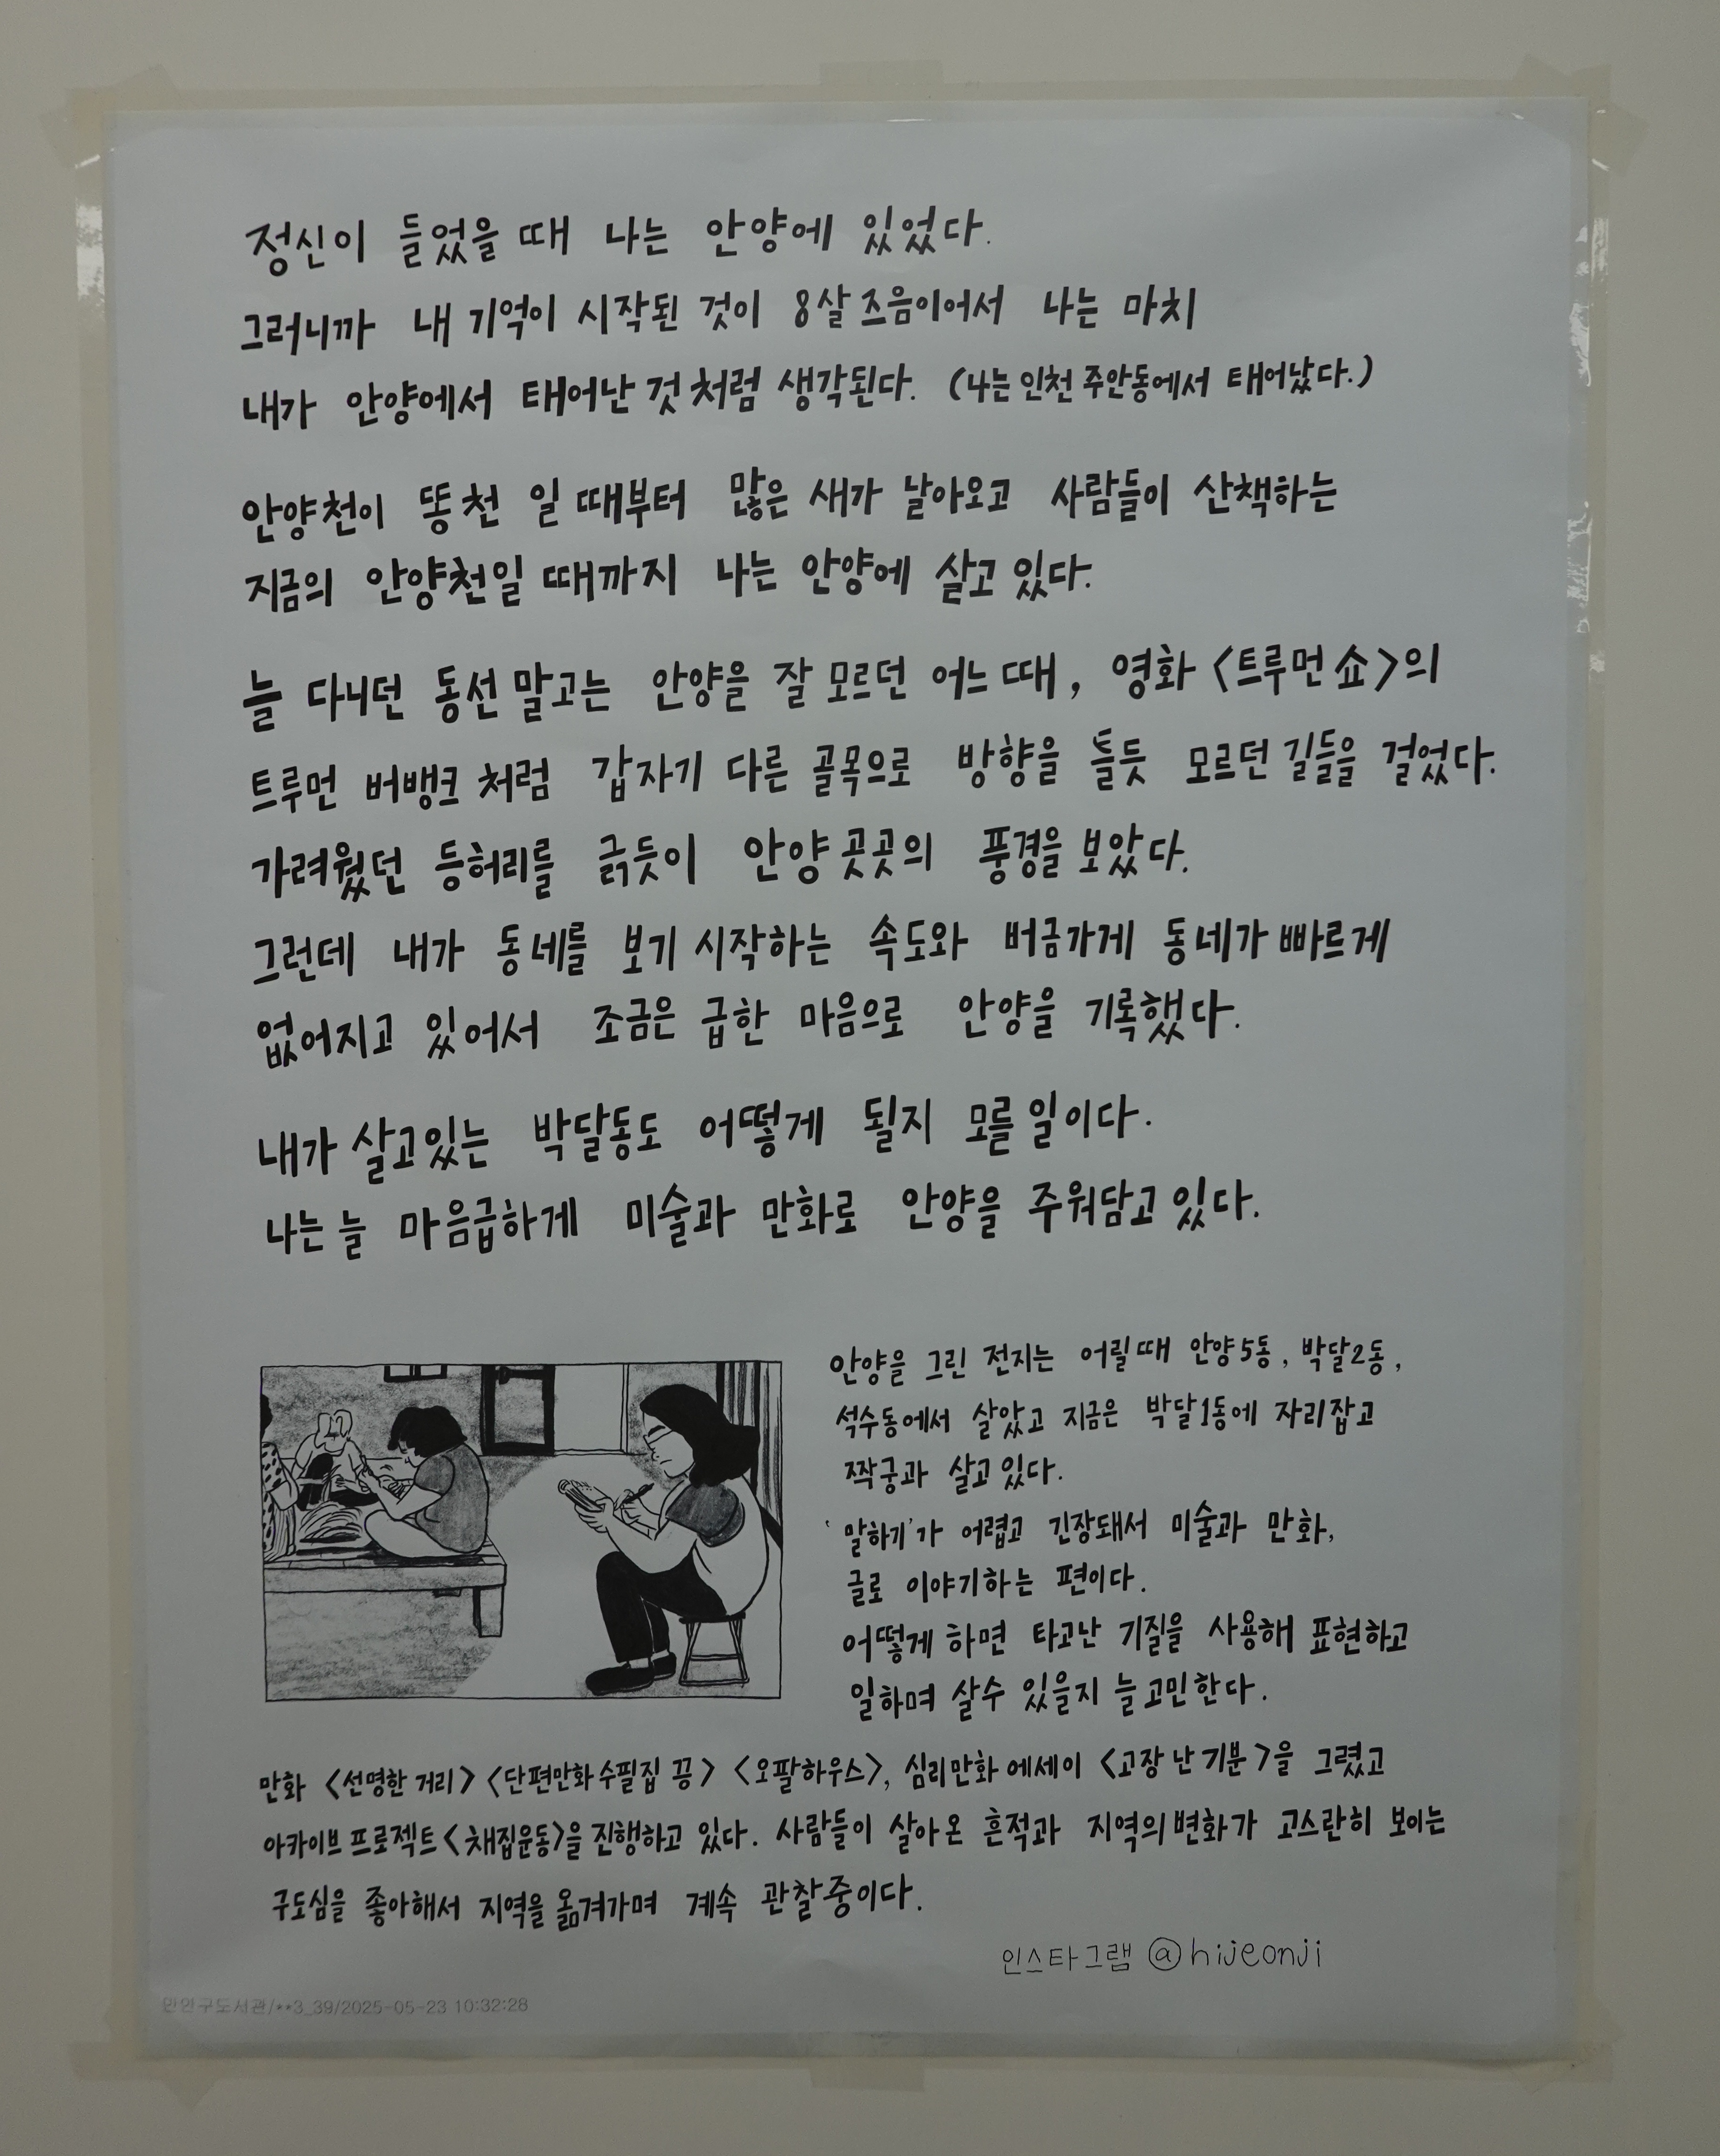 정신이 들었을 때 나는 안양에 있었다.
그러니까 내 기억이 시작된 것이 8살 즈음이어서 나는 마치
내가 안양에서 태어난 것 처럼 생각된다. (나는 인천 주안동에서 태어났다.)
안양천이 똥천 일 때부터 많은 새가 날아오고 사람들이 산책하는
지금의 안양천일 때까지 나는 안양에 살고 있다.
늘 다니던 동선 말고는 안양을 잘 모르던 어느 때, 영화 <트루먼 쇼>의
트루먼 버뱅크 처럼 갑자기 다른 골목으로 방향을 틀듯 모르던 길들을 걸었다.
가려웠던 등허리를 긁듯이 안양 곳곳의 풍경을 보았다.
그런데 내가 동네를 보기 시작하는 속도와 버금가게 동네가 빠르게
없어지고 있어서 조금은 급한 마음으로 안양을 기록했다.
내가 살고있는 박달동도 어떻게 될지 모를 일이다.
나는 늘 마음급하게 미술과 만화로 안양을 주워담고 있다.
안양을 그린 전지는 어릴때 안양5동, 박달2동,
석수동에서 살았고 지금은 박달1동에 자리잡고
짝궁과 살고 있다.
'말하기'가 어렵고 긴장돼서 미술과 만화,
글로 이야기하는 편이다.
어떻게 하면 타고난 기질을 사용해 표현하고
일하며 살수 있을지 늘 고민한다.
만화 <선명한 거리> <단편만화 수필집 끙> <오팔하우스>, 심리만화 에세이 <고장 난 기분>을 그렸고
아카이브 프로젝트 <채집운동>을 진행하고 있다. 사람들이 살아온 흔적과 지역의 변화가 고스란히 보이는
구도심을 좋아해서 지역을 옮겨가며 계속 관찰중이다.
인스타그램 @hijeonji
만안구도서관/**3_39/2025-05-23 10:32:28